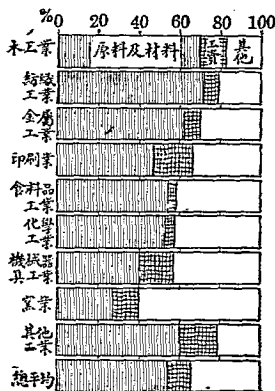 % 0 20 40 60 80 100
木工業 原料及材料 工賃 其他
紡織工業
金屬工業
印刷業
食料品工業
化學工業
機械器具工業
窯業
其他工業
總平均